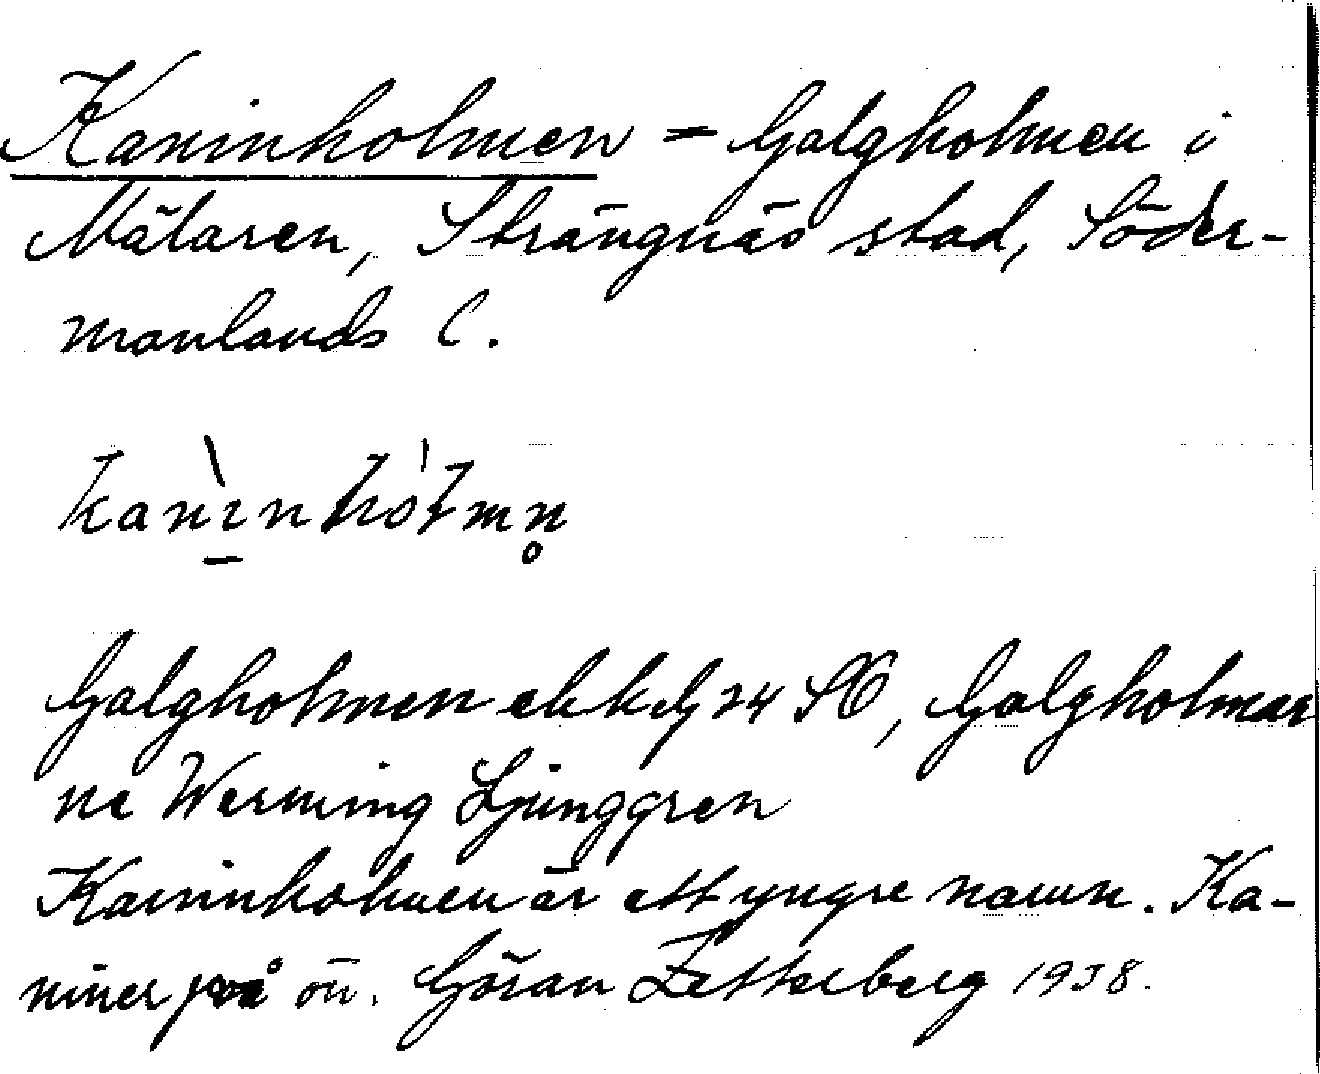 Kaninholmen = Galgholmen i
Mälaren, Strängnäs stad, Söder-
manlands L.
kanìnhólmn̥
Galgholmen ek kbl 74 SO, Galgholmar
ne Werming Ljunggren
Kaninholmen är ett yngre namn. Ka-
niner på ön. Göran Zetterberg 1938.